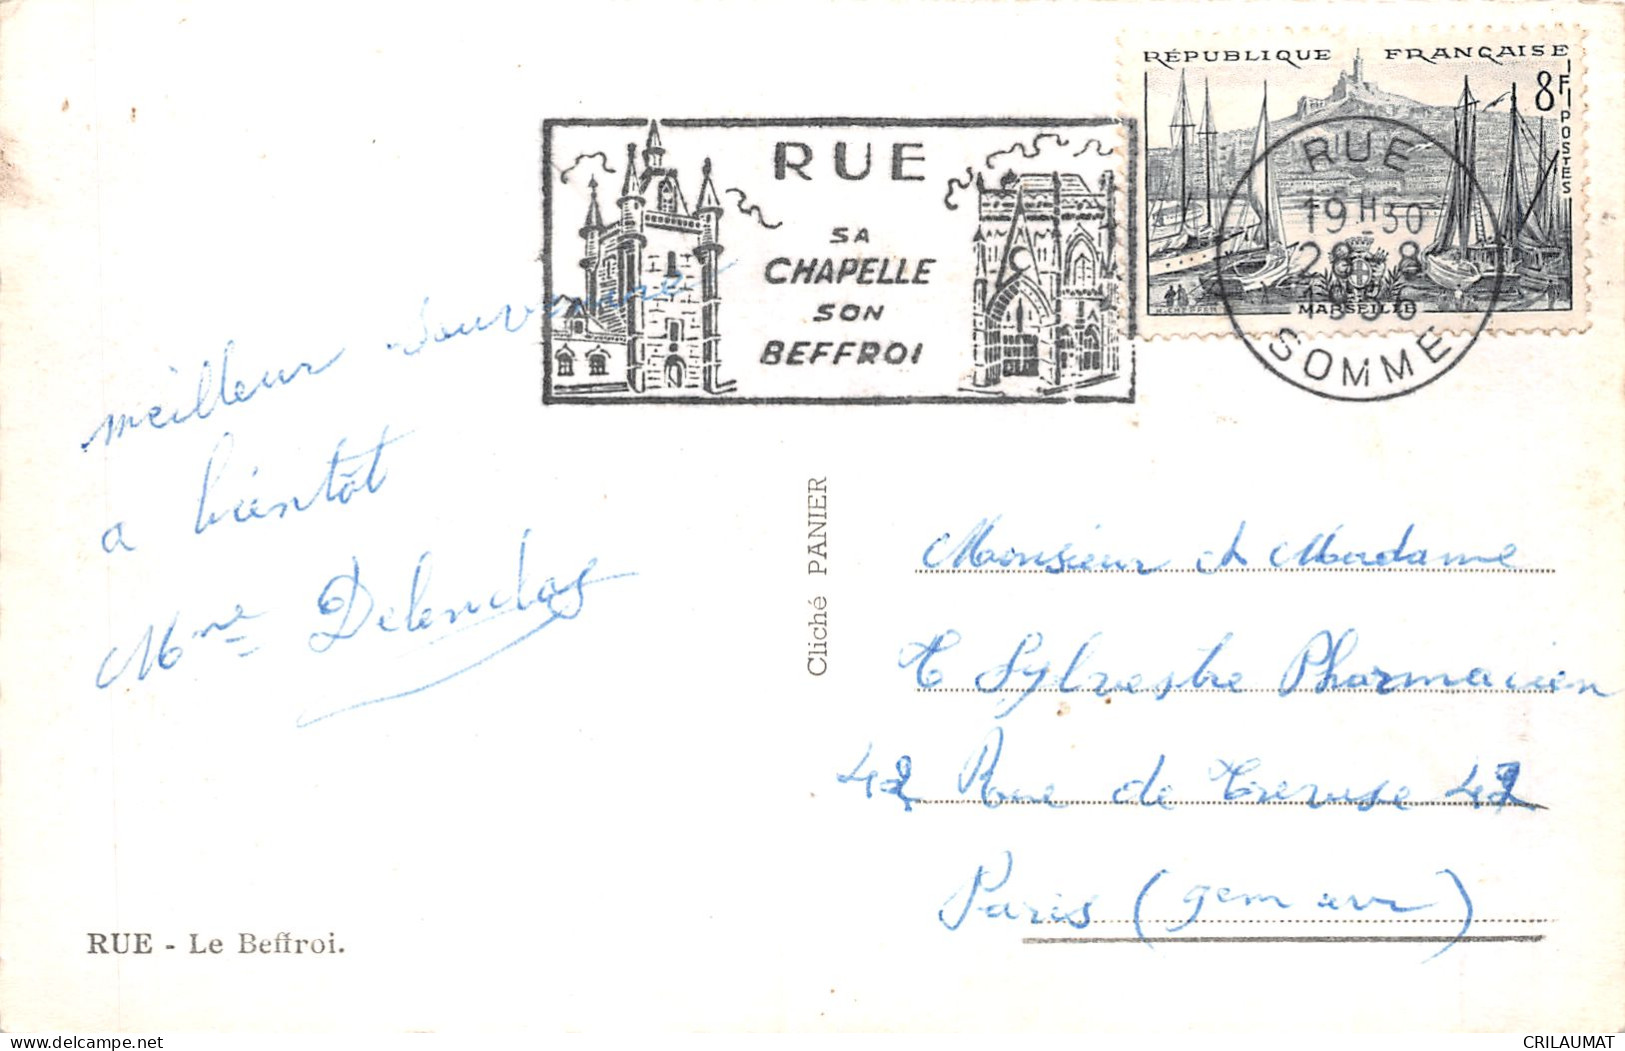 RÉPUBLIQUE FRANÇAISE
8F
POSTES
MARSEILLE
RUE
19H30
28-8
SOMME
RUE
SA
CHAPELLE
SON
BEFFROI
meilleur souvenir
a bientôt
Mme
Cliché PANIER
Monsieur et Madame
Sylvestre Pharmacien
42 Rue de 42
Paris
RUE - Le Beffroi.
delcampe.net
CRILAUMAT